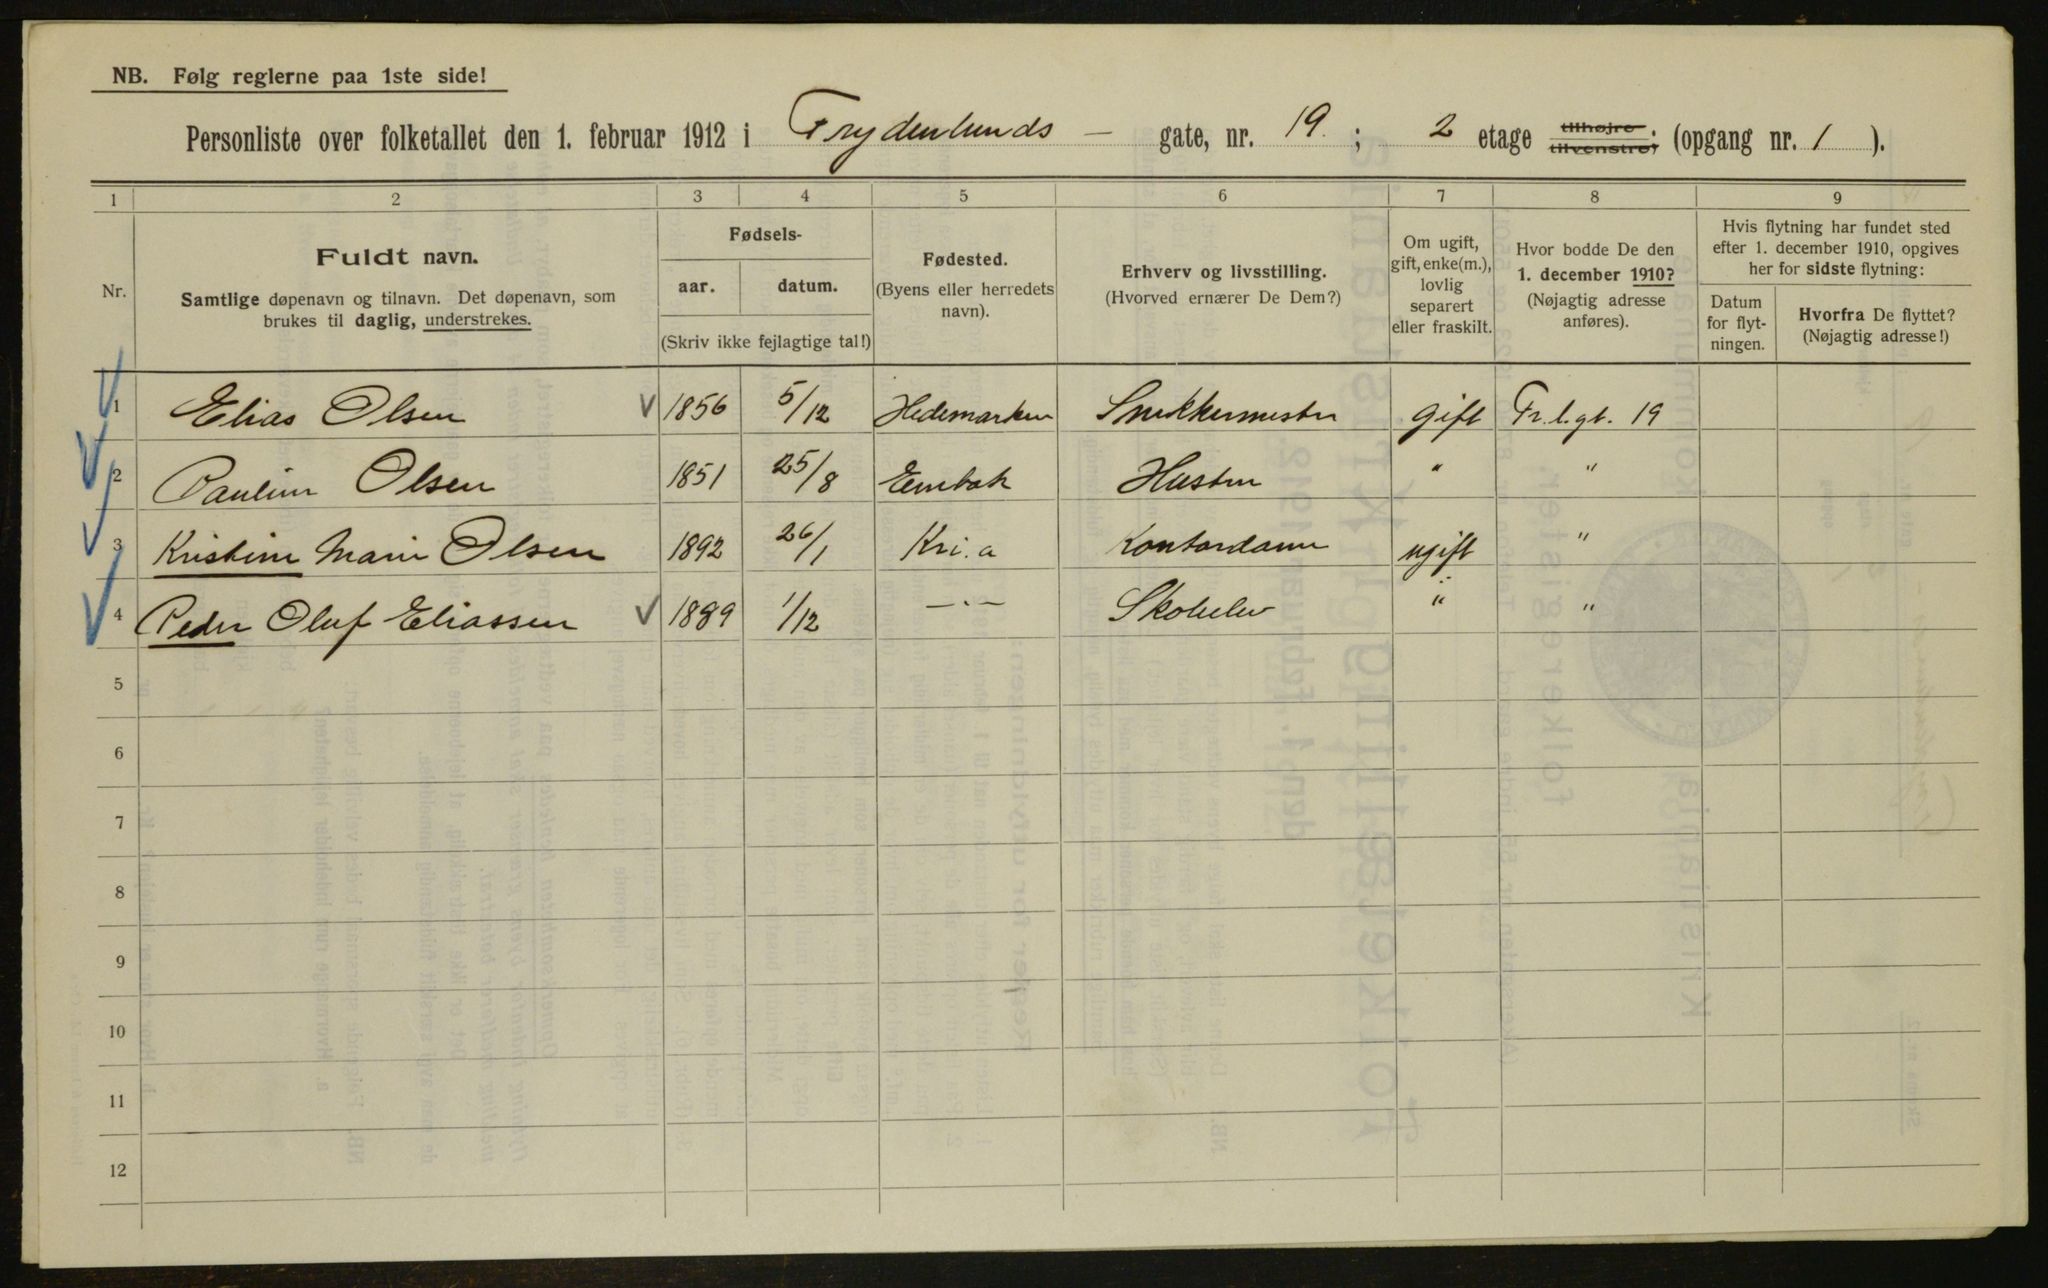 NB. Følg reglerne paa 1ste side!
Personliste over folketallet den 1. februar 1912 i Frydenlunds — gate, nr. 19. ; 2 etage tilhøjre tilvenstre; (opgang nr. 1 ).
1 2 3 4 5 6 7 8 9
Nr.
Fuldt navn.
Samtlige døpenavn og tilnavn. Det døpenavn, som
brukes til daglig, understrekes.
Fødsels-
aar. datum.
(Skriv ikke fejlagtige tal!)
Fødested.
(Byens eller herredets
navn).
Erhverv og livsstilling.
(Hvorved ernærer De Dem?)
Om ugift,
gift, enke(m.),
lovlig
separert
eller fraskilt.
Hvor bodde De den
1. december 1910?
(Nøjagtig adresse
anføres).
Hvis flytning har fundet sted
efter 1. december 1910, opgives
her for sidste flytning:
Datum
for flyt-
ningen.
Hvorfra De flyttet?
(Nøjagtig adresse!)
1 Elias Olsen 1856 5/12 Hedemarken Snekkermester gift Fr.l.gt. 19
2 Pauline Olsen 1851 25/8 Hustru " "
3 Kristine Marie Olsen 1892 26/1 Kri.a Kontordame ugift "
4 Peder Oluf Eliassen 1889 1/12 —"— Skoleelev " "
5
6
7
8
9
10
11
12